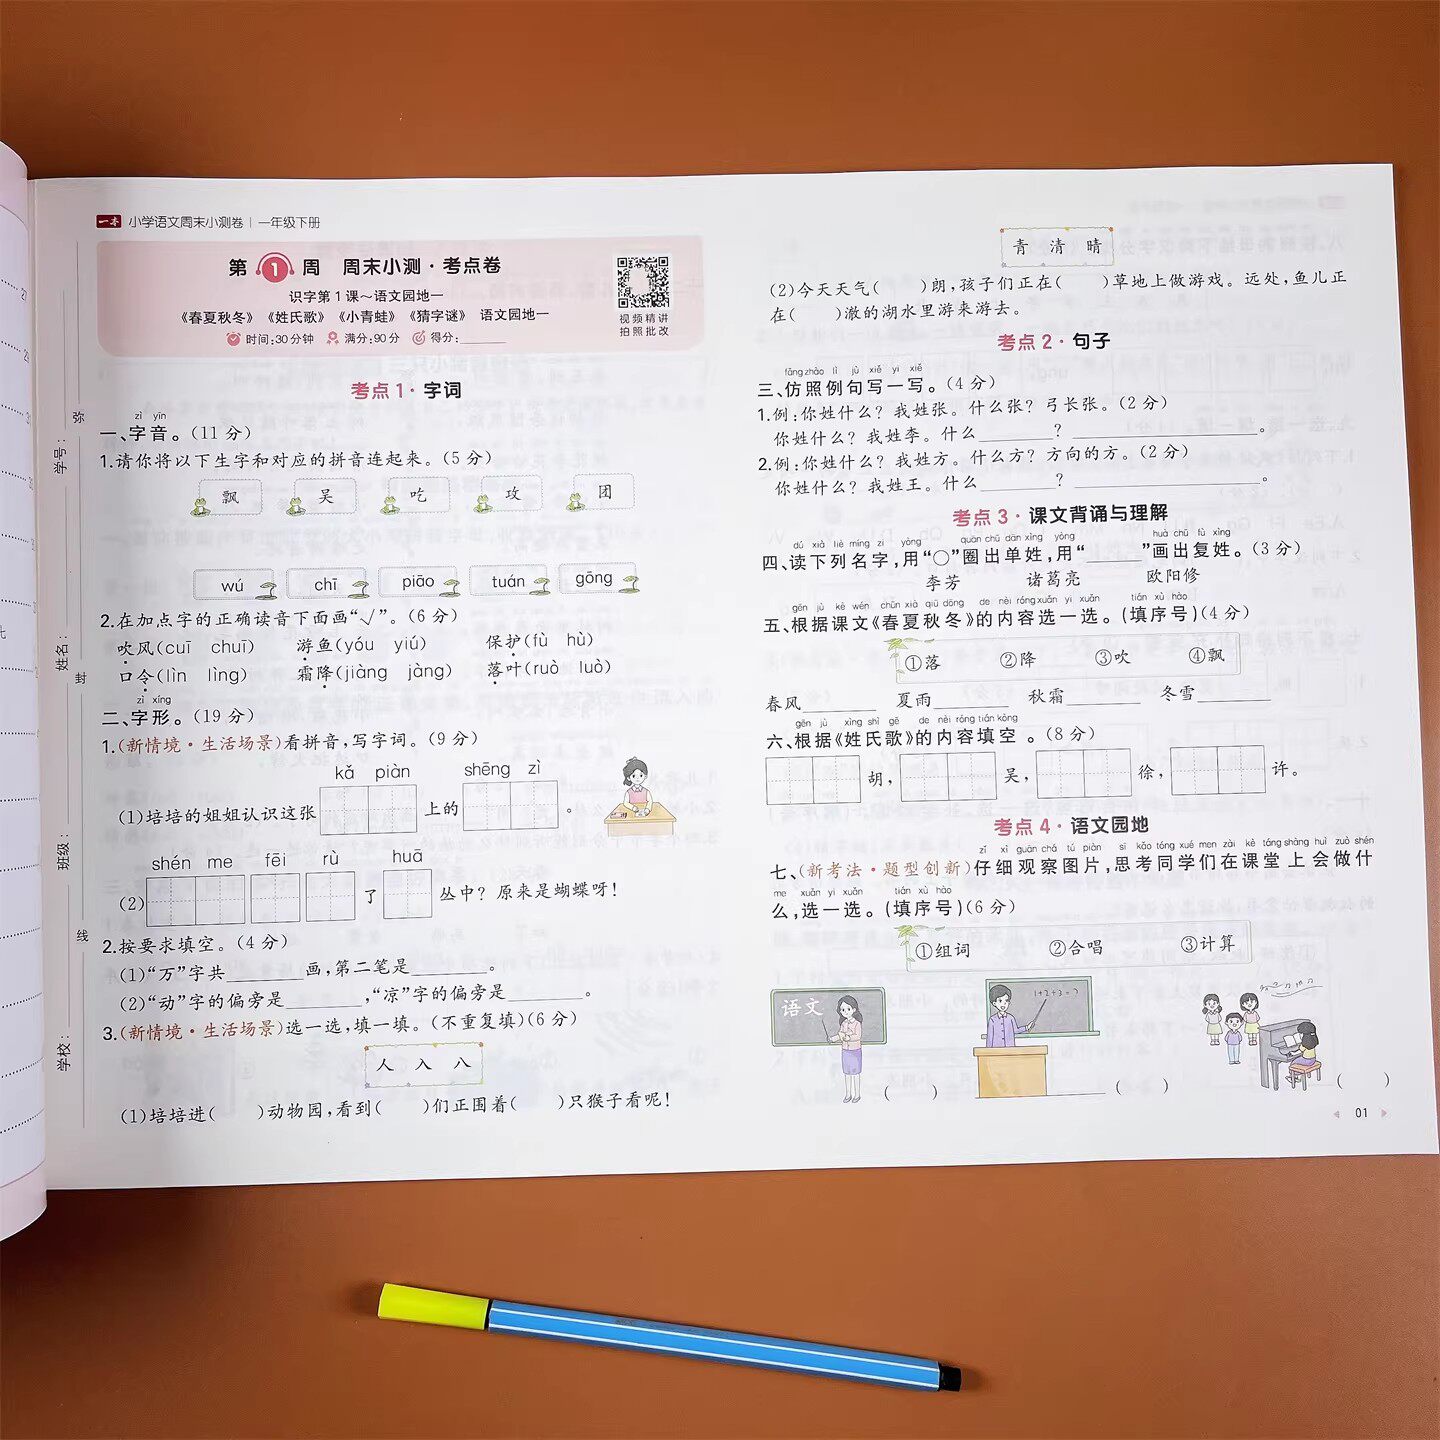 一本 小学语文周末小测卷 | 一年级下册
第1周 周末小测·考点卷
识字第1课~语文园地一
《春夏秋冬》《姓氏歌》《小青蛙》《猜字谜》 语文园地一
时间:30分钟 满分:90分 得分:______
视频精讲
拍照批改
学校: 班级: 姓名: 学号:
弥 封 线
考点1·字词
zì yīn
一、字音。(11分)
1.请你将以下生字和对应的拼音连起来。(5分)
飘 吴 吃 攻 团
wú chī piāo tuán gōng
2.在加点字的正确读音下面画“√”。(6分)
吹风(cuī chuī) 游鱼(yóu yiú) 保护(fù hù)
口令(lìn lìng) 霜降(jiàng jàng) 落叶(ruò luò)
zì xíng
二、字形。(19分)
1.(新情境·生活场景)看拼音,写字词。(9分)
kǎ piàn shēng zì
(1)培培的姐姐认识这张 上的 。
shén me fēi rù huā
(2) 了 丛中?原来是蝴蝶呀!
2.按要求填空。(4分)
(1)“万”字共______画,第二笔是______。
(2)“动”字的偏旁是______,“凉”字的偏旁是______。
3.(新情境·生活场景)选一选,填一填。(不重复填)(6分)
人 入 八
(1)培培进( )动物园,看到( )们正围着( )只猴子看呢!
青 清 晴
(2)今天天气( )朗,孩子们正在( )草地上做游戏。远处,鱼儿正
在( )澈的湖水里游来游去。
考点2·句子
fǎng zhào lì jù xiě yi xiě
三、仿照例句写一写。(4分)
1.例:你姓什么?我姓张。什么张?弓长张。(2分)
你姓什么?我姓李。什么______? ____________。
2.例:你姓什么?我姓方。什么方?方向的方。(2分)
你姓什么?我姓王。什么______? ____________。
考点3·课文背诵与理解
dú xià liè míng zì yòng quān chū dān xìng yòng huà chū fù xìng
四、读下列名字,用“○”圈出单姓,用“______”画出复姓。(3分)
李芳 诸葛亮 欧阳修
gēn jù kè wén chūn xià qiū dōng de nèi róng xuǎn yi xuǎn tián xù hào
五、根据课文《春夏秋冬》的内容选一选。(填序号)(4分)
①落 ②降 ③吹 ④飘
春风______ 夏雨______ 秋霜______ 冬雪______
gēn jù xìng shì gē de nèi róng tián kòng
六、根据《姓氏歌》的内容填空。(8分)
胡, 吴, 徐, 许。
考点4·语文园地
zǐ xì guān chá tú piàn sī kǎo tóng xué men zài kè táng shàng huì zuò shén
七、(新考法·题型创新)仔细观察图片,思考同学们在课堂上会做什
me xuǎn yi xuǎn tián xù hào
么,选一选。(填序号)(6分)
①组词 ②合唱 ③计算
语文 1+2+3=?
( ) ( ) ( )
01